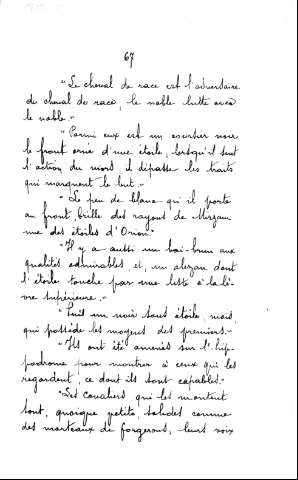 67
"Le cheval de race est l'adversaire
du cheval de race, le noble lutte avec
le noble."
"Parmi eux est un coursier noir
le front orné d'une étoile, lorsqu'il sent
l'action du mors, il dépasse les traits
qui marquent le but."
"Le peu de blanc qu'il porte
au front, brille des rayons de Mirzam
une des étoiles d'Orion."
"Il y a aussi un bai-brun aux
qualités admirables et, un alezan dont
l'étoile touche par une liste à la lè-
vre supérieure."
"Puis un noir sans étoile, mais
qui possède les moyens des premiers."
"Ils ont été amenés sur l'hip-
podrome pour montrer à ceux qui les
regardent, ce dont ils sont capables."
"Les cavaliers qui les montent
sont, quoique petits, solides comme
des marteaux de forgerons, leurs voix